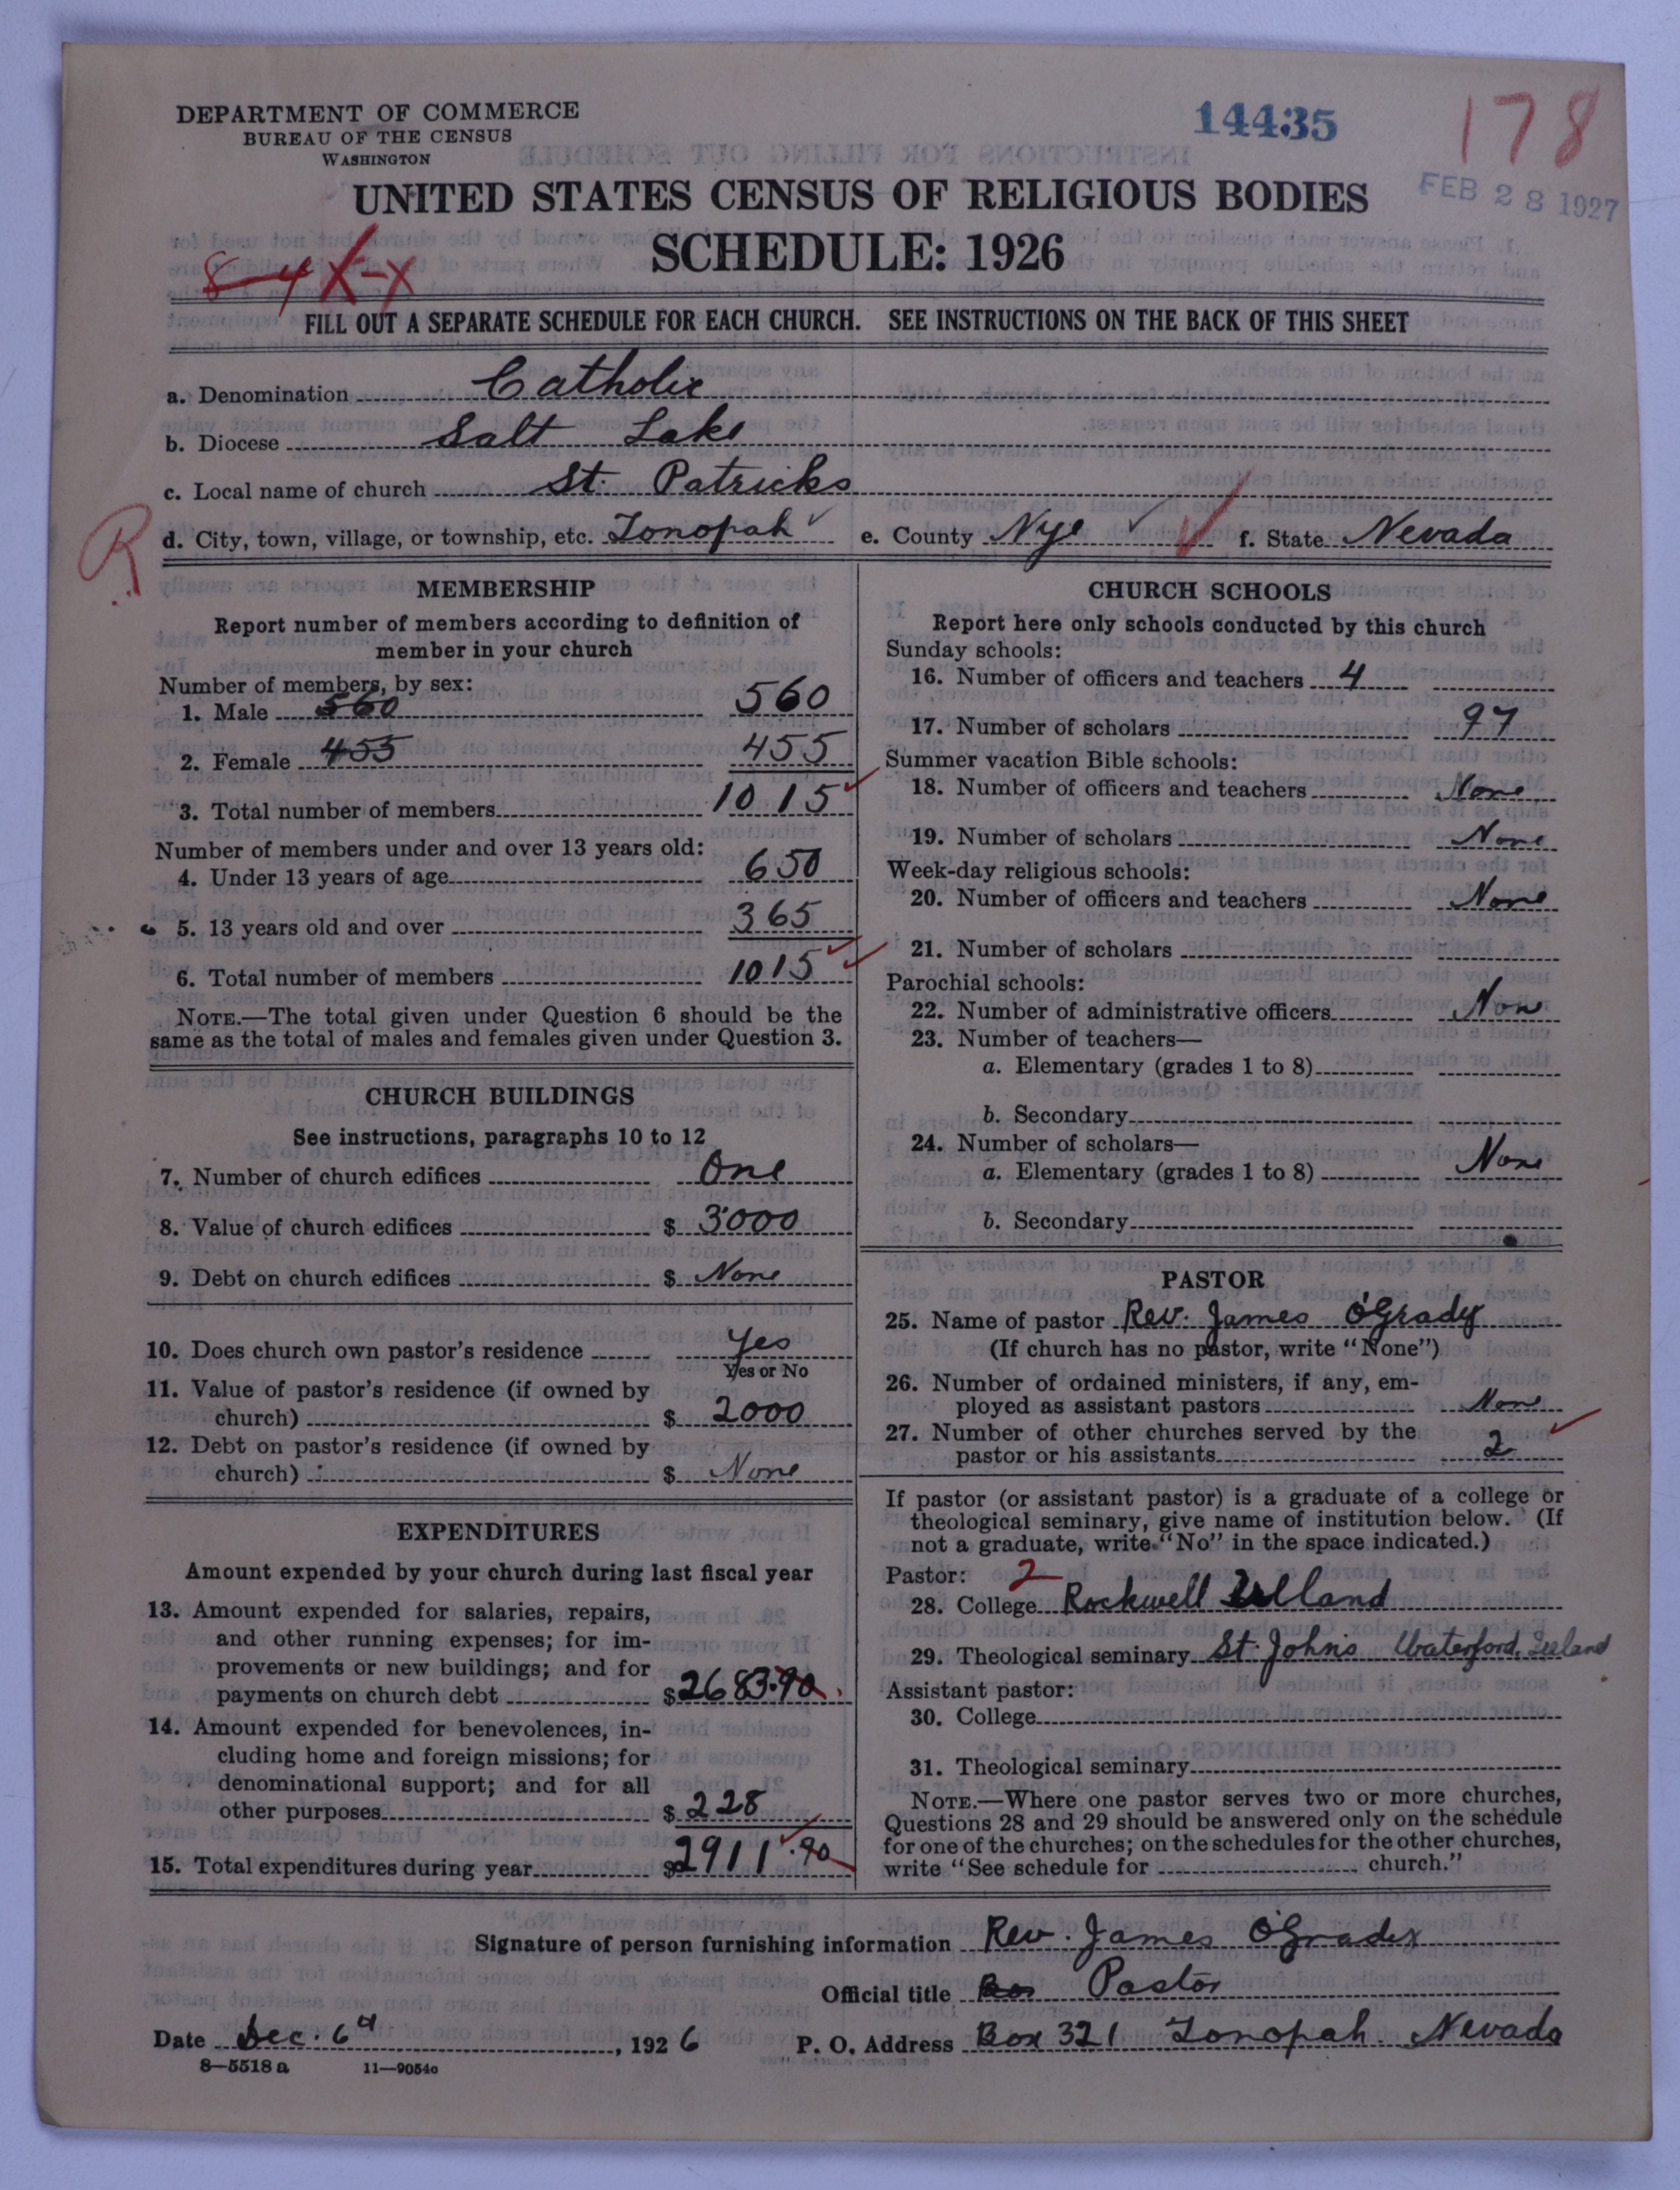 DEPARTMENT OF COMMERCE
BUREAU OF THE CENSUS
WASHINGTON
14435
178
FEB 28 1927
UNITED STATES CENSUS OF RELIGIOUS BODIES
SCHEDULE: 1926
8-4 X-X
FILL OUT A SEPARATE SCHEDULE FOR EACH CHURCH. SEE INSTRUCTIONS ON THE BACK OF THIS SHEET
a. Denomination Catholic
b. Diocese Salt Lake
c. Local name of church St. Patricks
R
d. City, town, village, or township, etc. Tonopah e. County Nye f. State Nevada
MEMBERSHIP
Report number of members according to definition of
member in your church
Number of members, by sex:
1. Male 560 560
2. Female 455 455
3. Total number of members 1015
Number of members under and over 13 years old:
4. Under 13 years of age 650
5. 13 years old and over 365
6. Total number of members 1015
NOTE.—The total given under Question 6 should be the
same as the total of males and females given under Question 3.
CHURCH BUILDINGS
See instructions, paragraphs 10 to 12
7. Number of church edifices One
8. Value of church edifices $ 3000
9. Debt on church edifices $ None
10. Does church own pastor's residence Yes
Yes or No
11. Value of pastor's residence (if owned by
church) $ 2000
12. Debt on pastor's residence (if owned by
church) $ None
EXPENDITURES
Amount expended by your church during last fiscal year
13. Amount expended for salaries, repairs,
and other running expenses; for im-
provements or new buildings; and for
payments on church debt $ 2683.90
14. Amount expended for benevolences, in-
cluding home and foreign missions; for
denominational support; and for all
other purposes $ 228
15. Total expenditures during year $ 2911.90
CHURCH SCHOOLS
Report here only schools conducted by this church
Sunday schools:
16. Number of officers and teachers 4
17. Number of scholars 97
Summer vacation Bible schools:
18. Number of officers and teachers None
19. Number of scholars None
Week-day religious schools:
20. Number of officers and teachers None
21. Number of scholars
Parochial schools:
22. Number of administrative officers Non
23. Number of teachers—
a. Elementary (grades 1 to 8)
b. Secondary
24. Number of scholars—
a. Elementary (grades 1 to 8) None
b. Secondary
PASTOR
25. Name of pastor Rev. James O'Grady
(If church has no pastor, write "None")
26. Number of ordained ministers, if any, em-
ployed as assistant pastors None
27. Number of other churches served by the
pastor or his assistants 2
If pastor (or assistant pastor) is a graduate of a college or
theological seminary, give name of institution below. (If
not a graduate, write "No" in the space indicated.)
Pastor: 2
28. College Rockwell
29. Theological seminary St. Johns Waterford, Ireland
Assistant pastor:
30. College
31. Theological seminary
NOTE.—Where one pastor serves two or more churches,
Questions 28 and 29 should be answered only on the schedule
for one of the churches; on the schedules for the other churches,
write "See schedule for church."
Signature of person furnishing information Rev. James O'Grady
Official title Box Pastor
Date Dec. 6th, 1926 P. O. Address Box 321 Tonopah. Nevada
8—5518 a 11—9054c